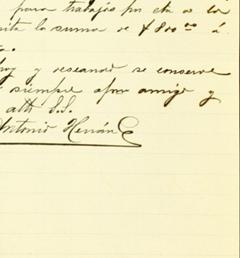 para trabajos por cta de la
ita la suma de $800.00 á
hoy y deseando se conserve
siempre afmo amigo y
atto S.S.
Antonio Hernán